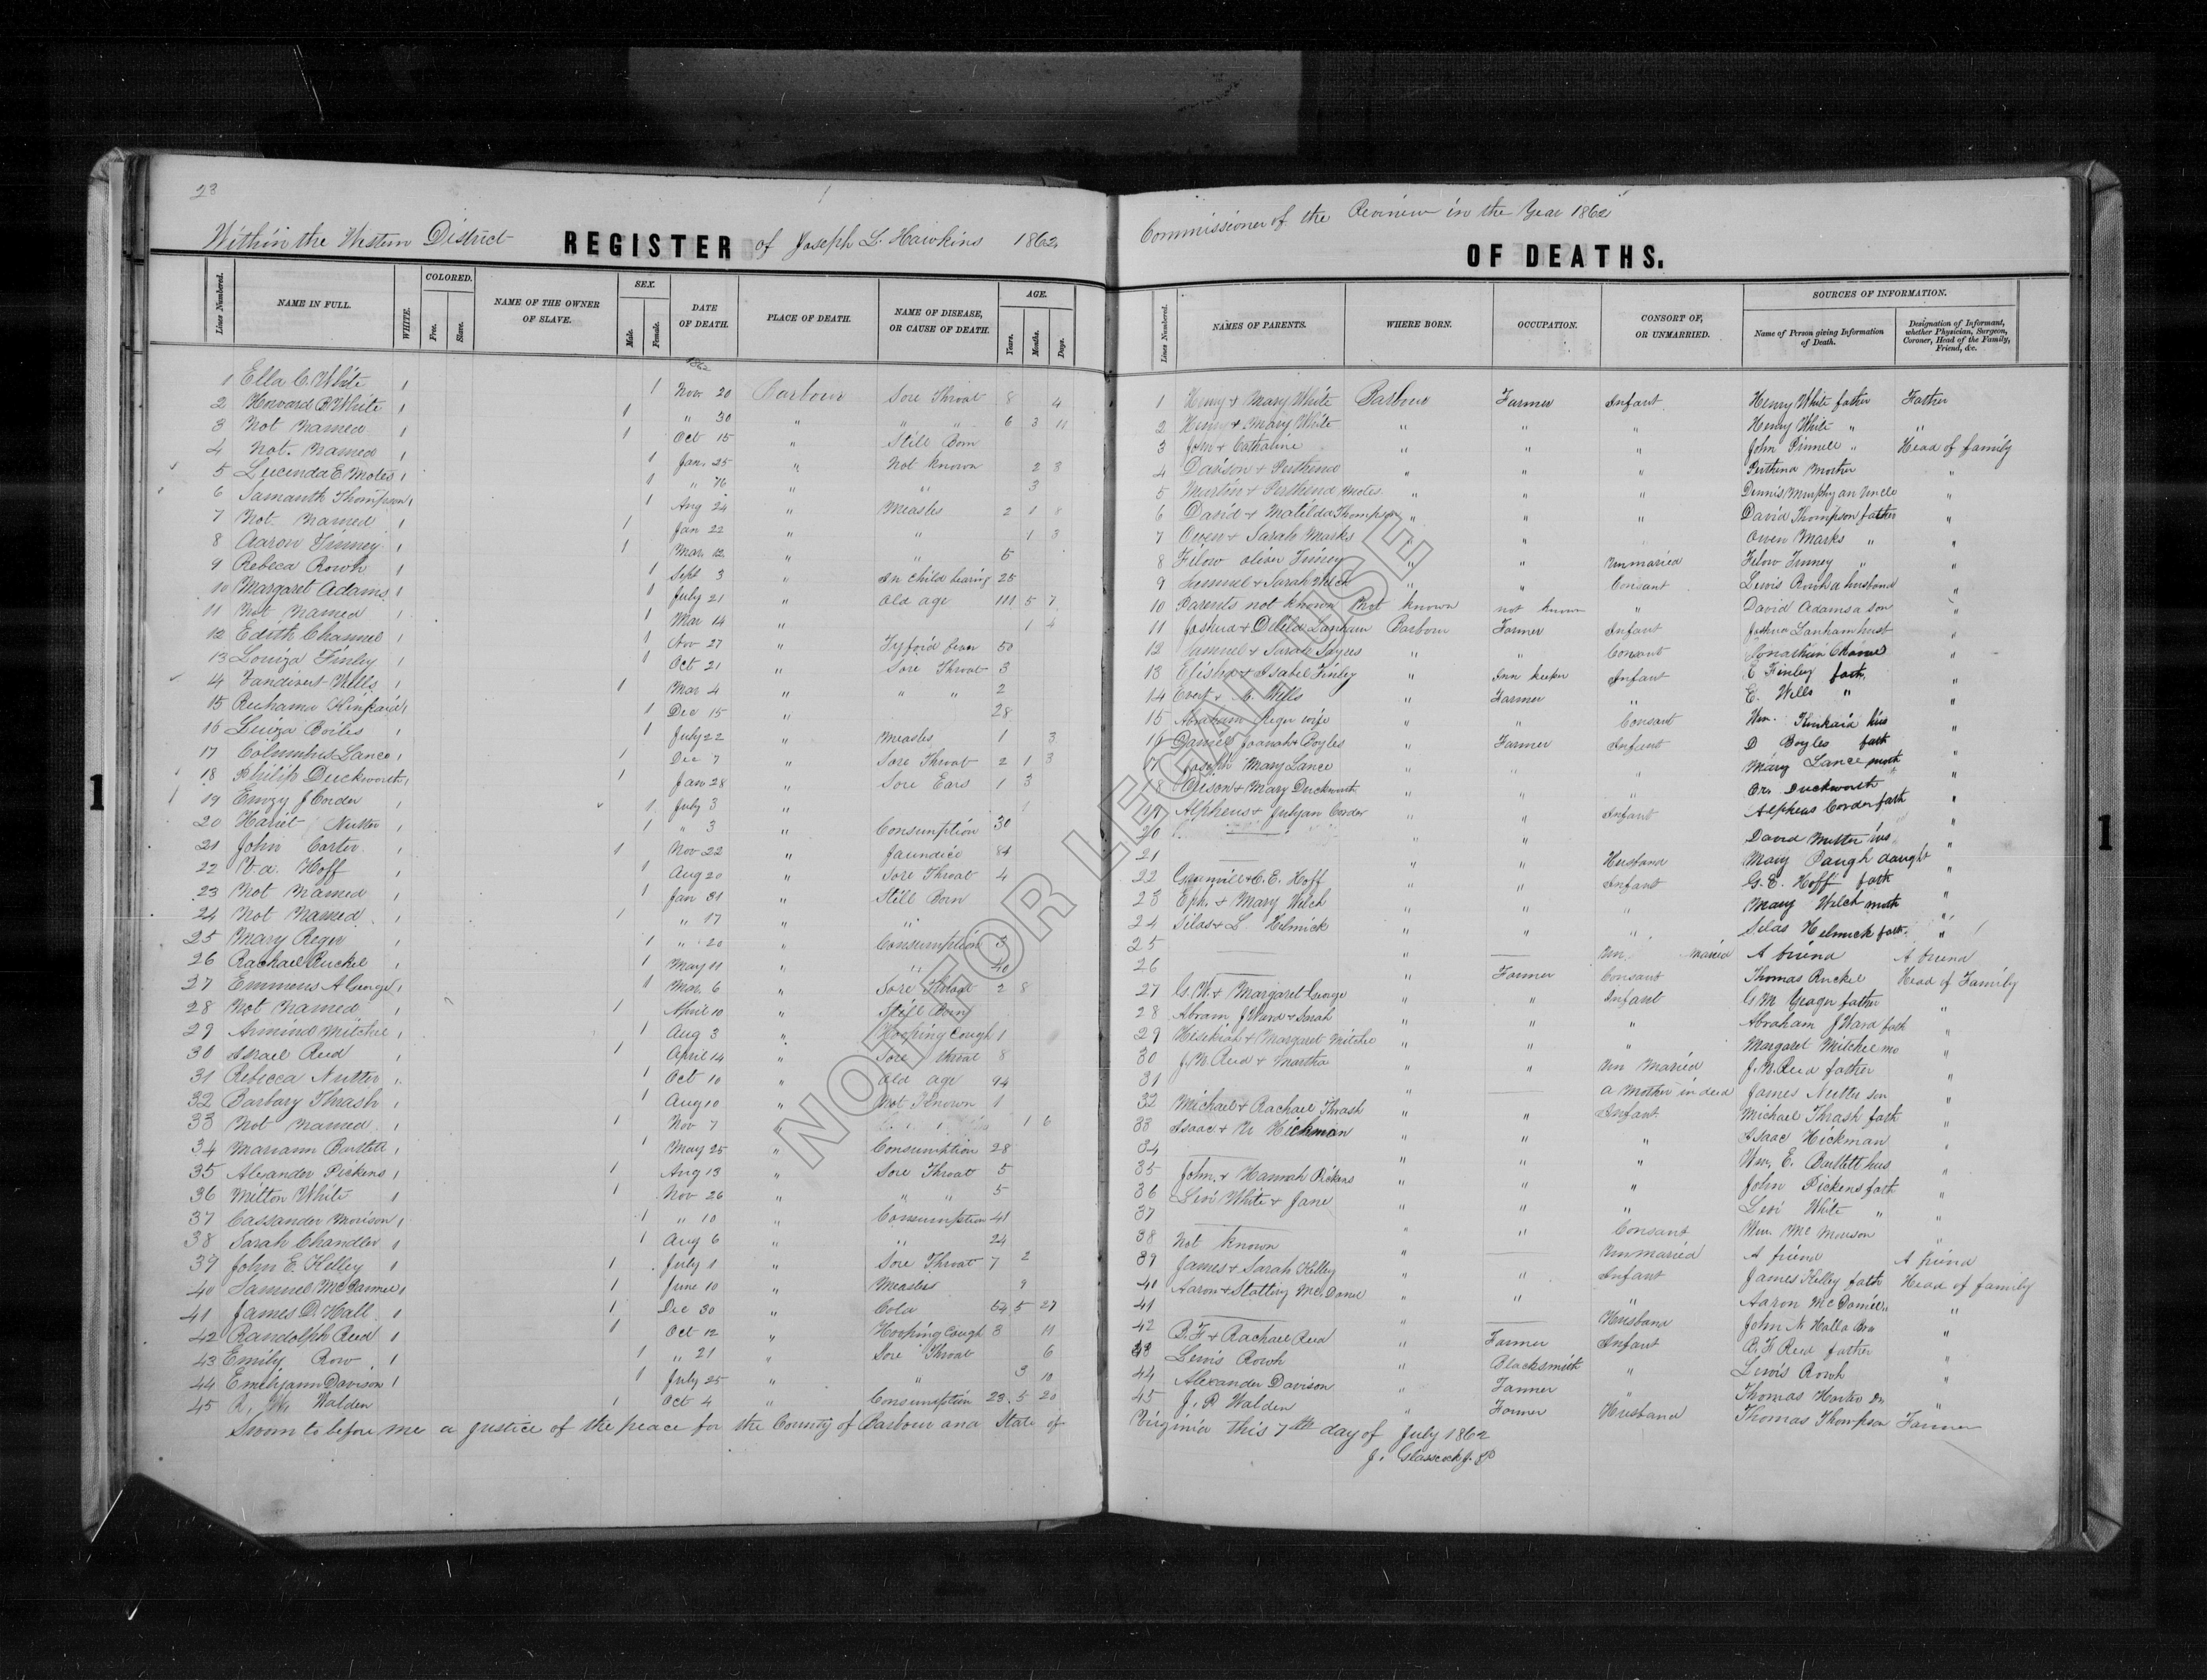 23
Within the Western District REGISTER of Joseph L. Hawkins 1862
Lines Numbered. NAME IN FULL. WHITE. COLORED. Free. Slave. NAME OF THE OWNER OF SLAVE. SEX. Male. Female. DATE OF DEATH. PLACE OF DEATH. NAME OF DISEASE, OR CAUSE OF DEATH. AGE. Years. Months. Days.
1862
1 Ella C. White 1 1 Nov 20 Barbour Sore Throat 8 4
2 Howard B White 1 1 " 30 " " " 6 3 11
3 Not Named 1 1 Oct 15 " Still Born
4 Not Named 1 1 Jan. 25 " Not Known 2 8
5 Lucinda E Moles 1 1 " 16 " " 3
6 Samanth Thompson 1 1 Aug 24 " Measles 2 1 8
7 Not Named 1 1 Jan 22 " " 1 3
8 Aaron Finney 1 1 Mar 12 " " 5
9 Rebeca Rowh 1 1 Sept 3 " In Child bearing 25
10 Margaret Adams 1 1 July 21 " Old age 111 5 7
11 Not Named 1 1 Mar 14 " 1 4
12 Edith Channel 1 1 Nov 27 " Tyfoid fever 50
13 Louiza Finley 1 1 Oct 21 " Sore Throat 3
14 Vandivert Wells 1 1 Mar 4 " " " 2
15 Ruhama Kinkaid 1 1 Dec 15 " 28
16 Luiza Boiles 1 1 July 22 " Measles 1 3
17 Columbus Lance 1 1 Dec 7 " Sore Throat 2 1 3
18 Philip Duckworth 1 1 Jan 28 " Sore Ears 1 3
19 Emzy J Corder 1 1 July 3 " 1
20 Hariet Nutter 1 1 " 3 " Consumption 30
21 John Carter 1 1 Nov 22 " Jaundice 84
22 V.a. Hoff 1 1 Aug 20 " Sore Throat 4
23 Not Named 1 1 Jan 31 " Still Born
24 Not Named 1 1 " 17 " "
25 Mary Reger 1 1 " 20 " Consumption 3
26 Rachael Ruckel 1 1 May 11 " " 40
27 Emmens A George 1 1 Mar. 6 " Sore Throat 2 8
28 Not Named 1 1 April 10 " Still Born
29 Armind Mitchel 1 1 Aug 3 " Hooping Cough 1
30 Israel Reed 1 1 April 14 " Sore throat 8
31 Rebecca Nutter 1 1 Oct 10 " Old age 94
32 Barbary Thrash 1 1 Aug 10 " Not Known 1
33 Not Named 1 1 Nov 7 " 1 6
34 Mariann Bartlett 1 1 May 25 " Consumption 28
35 Alexander Pickens 1 1 Aug 13 " Sore Throat 5
36 Milton White 1 1 Nov 26 " " " 5
37 Cassander Morison 1 1 " 10 " Consumption 41
38 Sarah Chandler 1 1 Aug 6 " " 24
39 John E. Kelley 1 1 July 1 " Sore Throat 7 2
40 Samuel McDannel 1 1 June 10 " Measles 9
41 James D. Hall 1 1 Dec 30 " Cold 54 5 27
42 Randolph Reed 1 1 Oct 12 " Hooping Cough 3 11
43 Emily Row 1 1 " 21 " Sore Throat 6
44 Emilyann Davison 1 1 July 25 " 3 10
45 R. W. Walden 1 Oct 4 " Consumption 23 5 20
Sworn to before me a justice of the peace for the County of Barbour and State of
Commissioner of the Revinew in the Year 1862
OF DEATHS.
Lines Numbered. NAMES OF PARENTS. WHERE BORN. OCCUPATION. CONSORT OF, OR UNMARRIED. SOURCES OF INFORMATION. Name of Person giving Information of Death. Designation of Informant, whether Physician, Surgeon, Coroner, Head of the Family, Friend, &c.
1 Henry & Mary White Barbour Farmer Infant Henry White father Father
2 Henry & Mary White " " " Henry White " "
3 John & Catharine " " " John Pinnell " Head of family
4 Davison & Perthena " " " Perthena Mother "
5 Martin & Perthena Moles " " " Dennis Murphy an Uncle "
6 David & Matilda Thompson " " " David Thompson father "
7 Owen & Sarah Marks " " " Owen Marks " "
8 Filow Finney " " Unmaried Filow Finney " "
9 Lemuel & Sarah Welch " " Consant Lewis Rowh a husband "
10 Parents not known Not known not known " David Adams a son "
11 Joshua & Delila Lanham Barbour Farmer Infant Joshua Lanham "
12 Samuel & Sarah Sayres " " Consant Jonathan Channel "
13 Elisha & Isabel Finley " Inn keeper Infant E Finley fath. "
14 Evert & C. Wells " Farmer " E. Wells " "
15 Abraham Reger wife " " Consant Wm. Kinkaid hus "
16 Daniel Joanah Boyles " Farmer Infant D Boyles fath "
17 Joseph Mary Lance " " " Mary Lance moth "
18 Orison & Mary Duckworth " " " Or. Duckworth "
19 Alpheus & Julyan Corder " " Infant Alpheus Corder fath "
20 " " David Nutter hus "
21 " " Husband Mary Paugh daught "
22 Greenvill & C. E. Hoff " " Infant G. E. Hoff fath "
23 Eph. & Mary Welch " " " Mary Welch moth "
24 Silas & L. Helmick " " " Silas Helmick fath. "
25 " Un Maried A friend A friend
26 " Farmer Consant Thomas Ruckel Head of Family
27 G. W. & Margaret George " " Infant G W George father "
28 Abram J Ward & Sarah " " " Abraham J Ward fath "
29 Hesekiah & Margaret Mitchel " " " Margaret Mitchel mo "
30 J. N. Reed & Martha " " Un Maried J. N. Reed father "
31 " a Mother in deed James Nutter son "
32 Michael & Rachael Thrash " " Infant Michael Thrash fath "
33 Isaac & M Hickman " " " Isaac Hickman "
34 " " " Wm. E. Bartlett hus "
35 John & Hannah Pickens " " " John Pickens fath "
36 Levi White & Jane " " " Levi White " "
37 " " Consant Wm. Mc Morison "
38 Not Known " Unmaried A friend A friend
39 James & Sarah Kelley " " Infant James Kelley fath Head of family
41 Aaron & Mc. Danel " " " Aaron McDaniel " "
41 " Husband John N Hall a Bro "
42 B. F & Rachael Reed " Farmer Infant B. F Reed father "
43 Lewis Rowh " Blacksmith " Lewis Rowh "
44 Alexander Davison " Farmer " Thomas "
45 J. P Walden " Farmer Husband Thomas Thompson Farmer
Virginia this 7th day of July 1862
J. Glasscock J. P
NOT FOR LEGAL USE
1
1